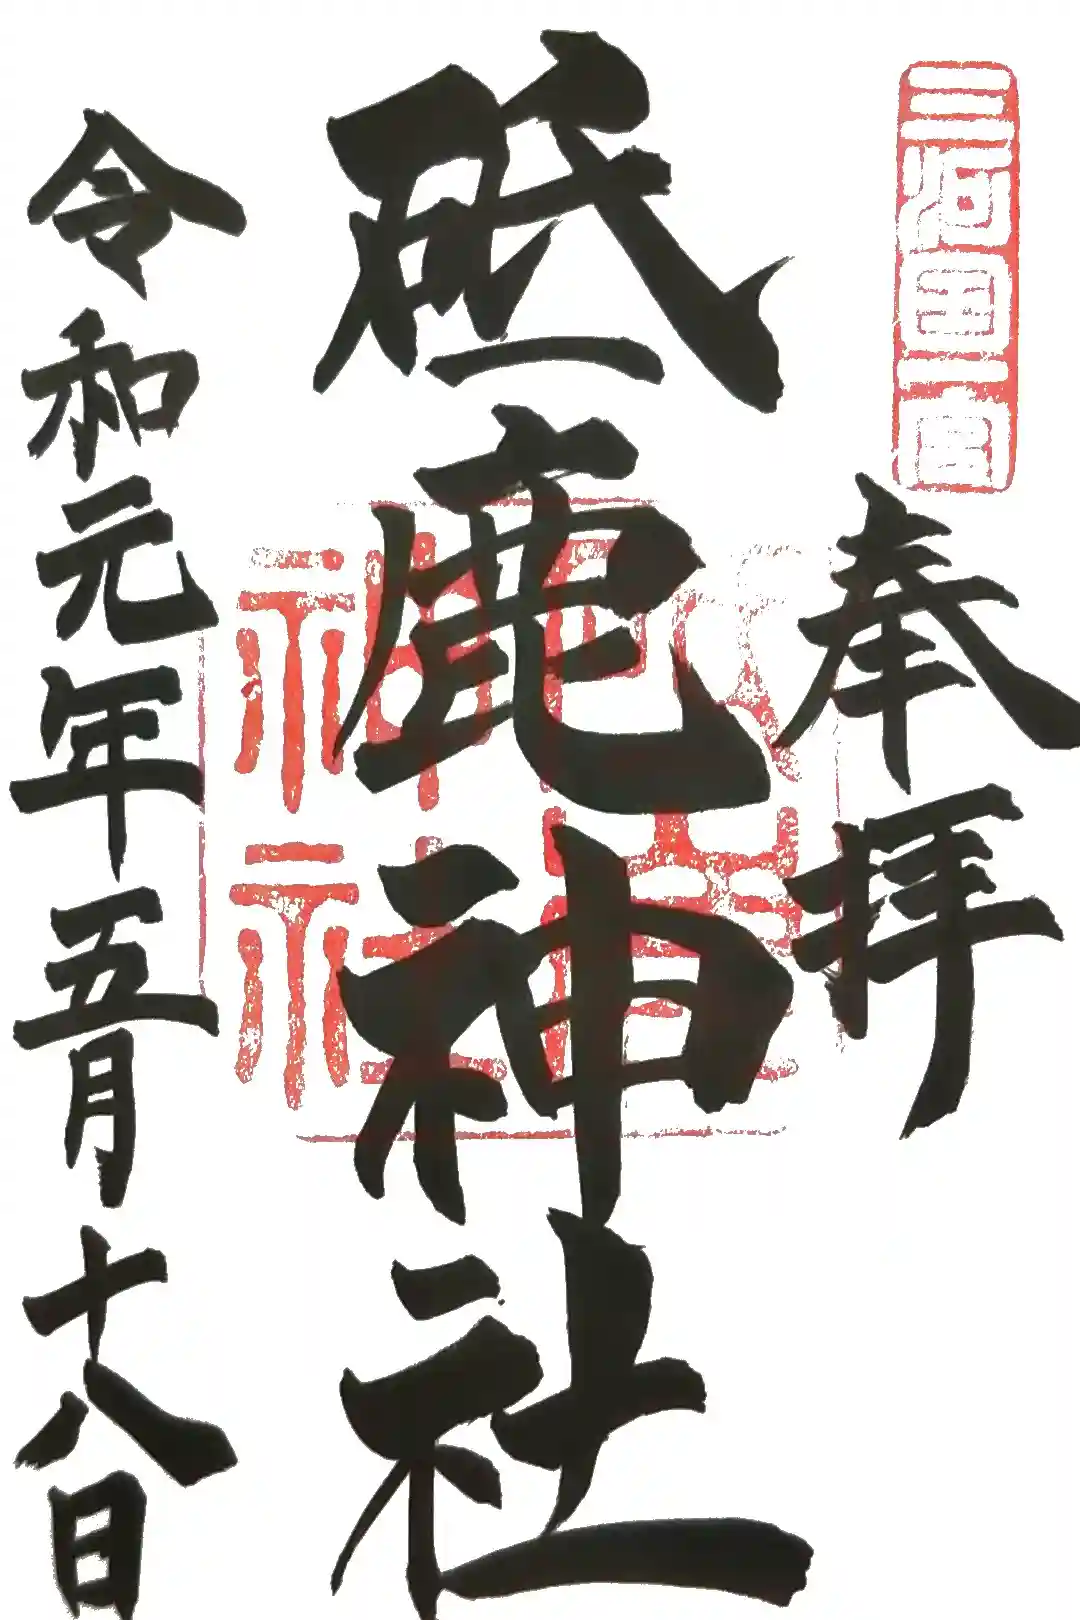 三河國一宮
奉拝
砥鹿神社
砥鹿神社
令和元年五月十八日